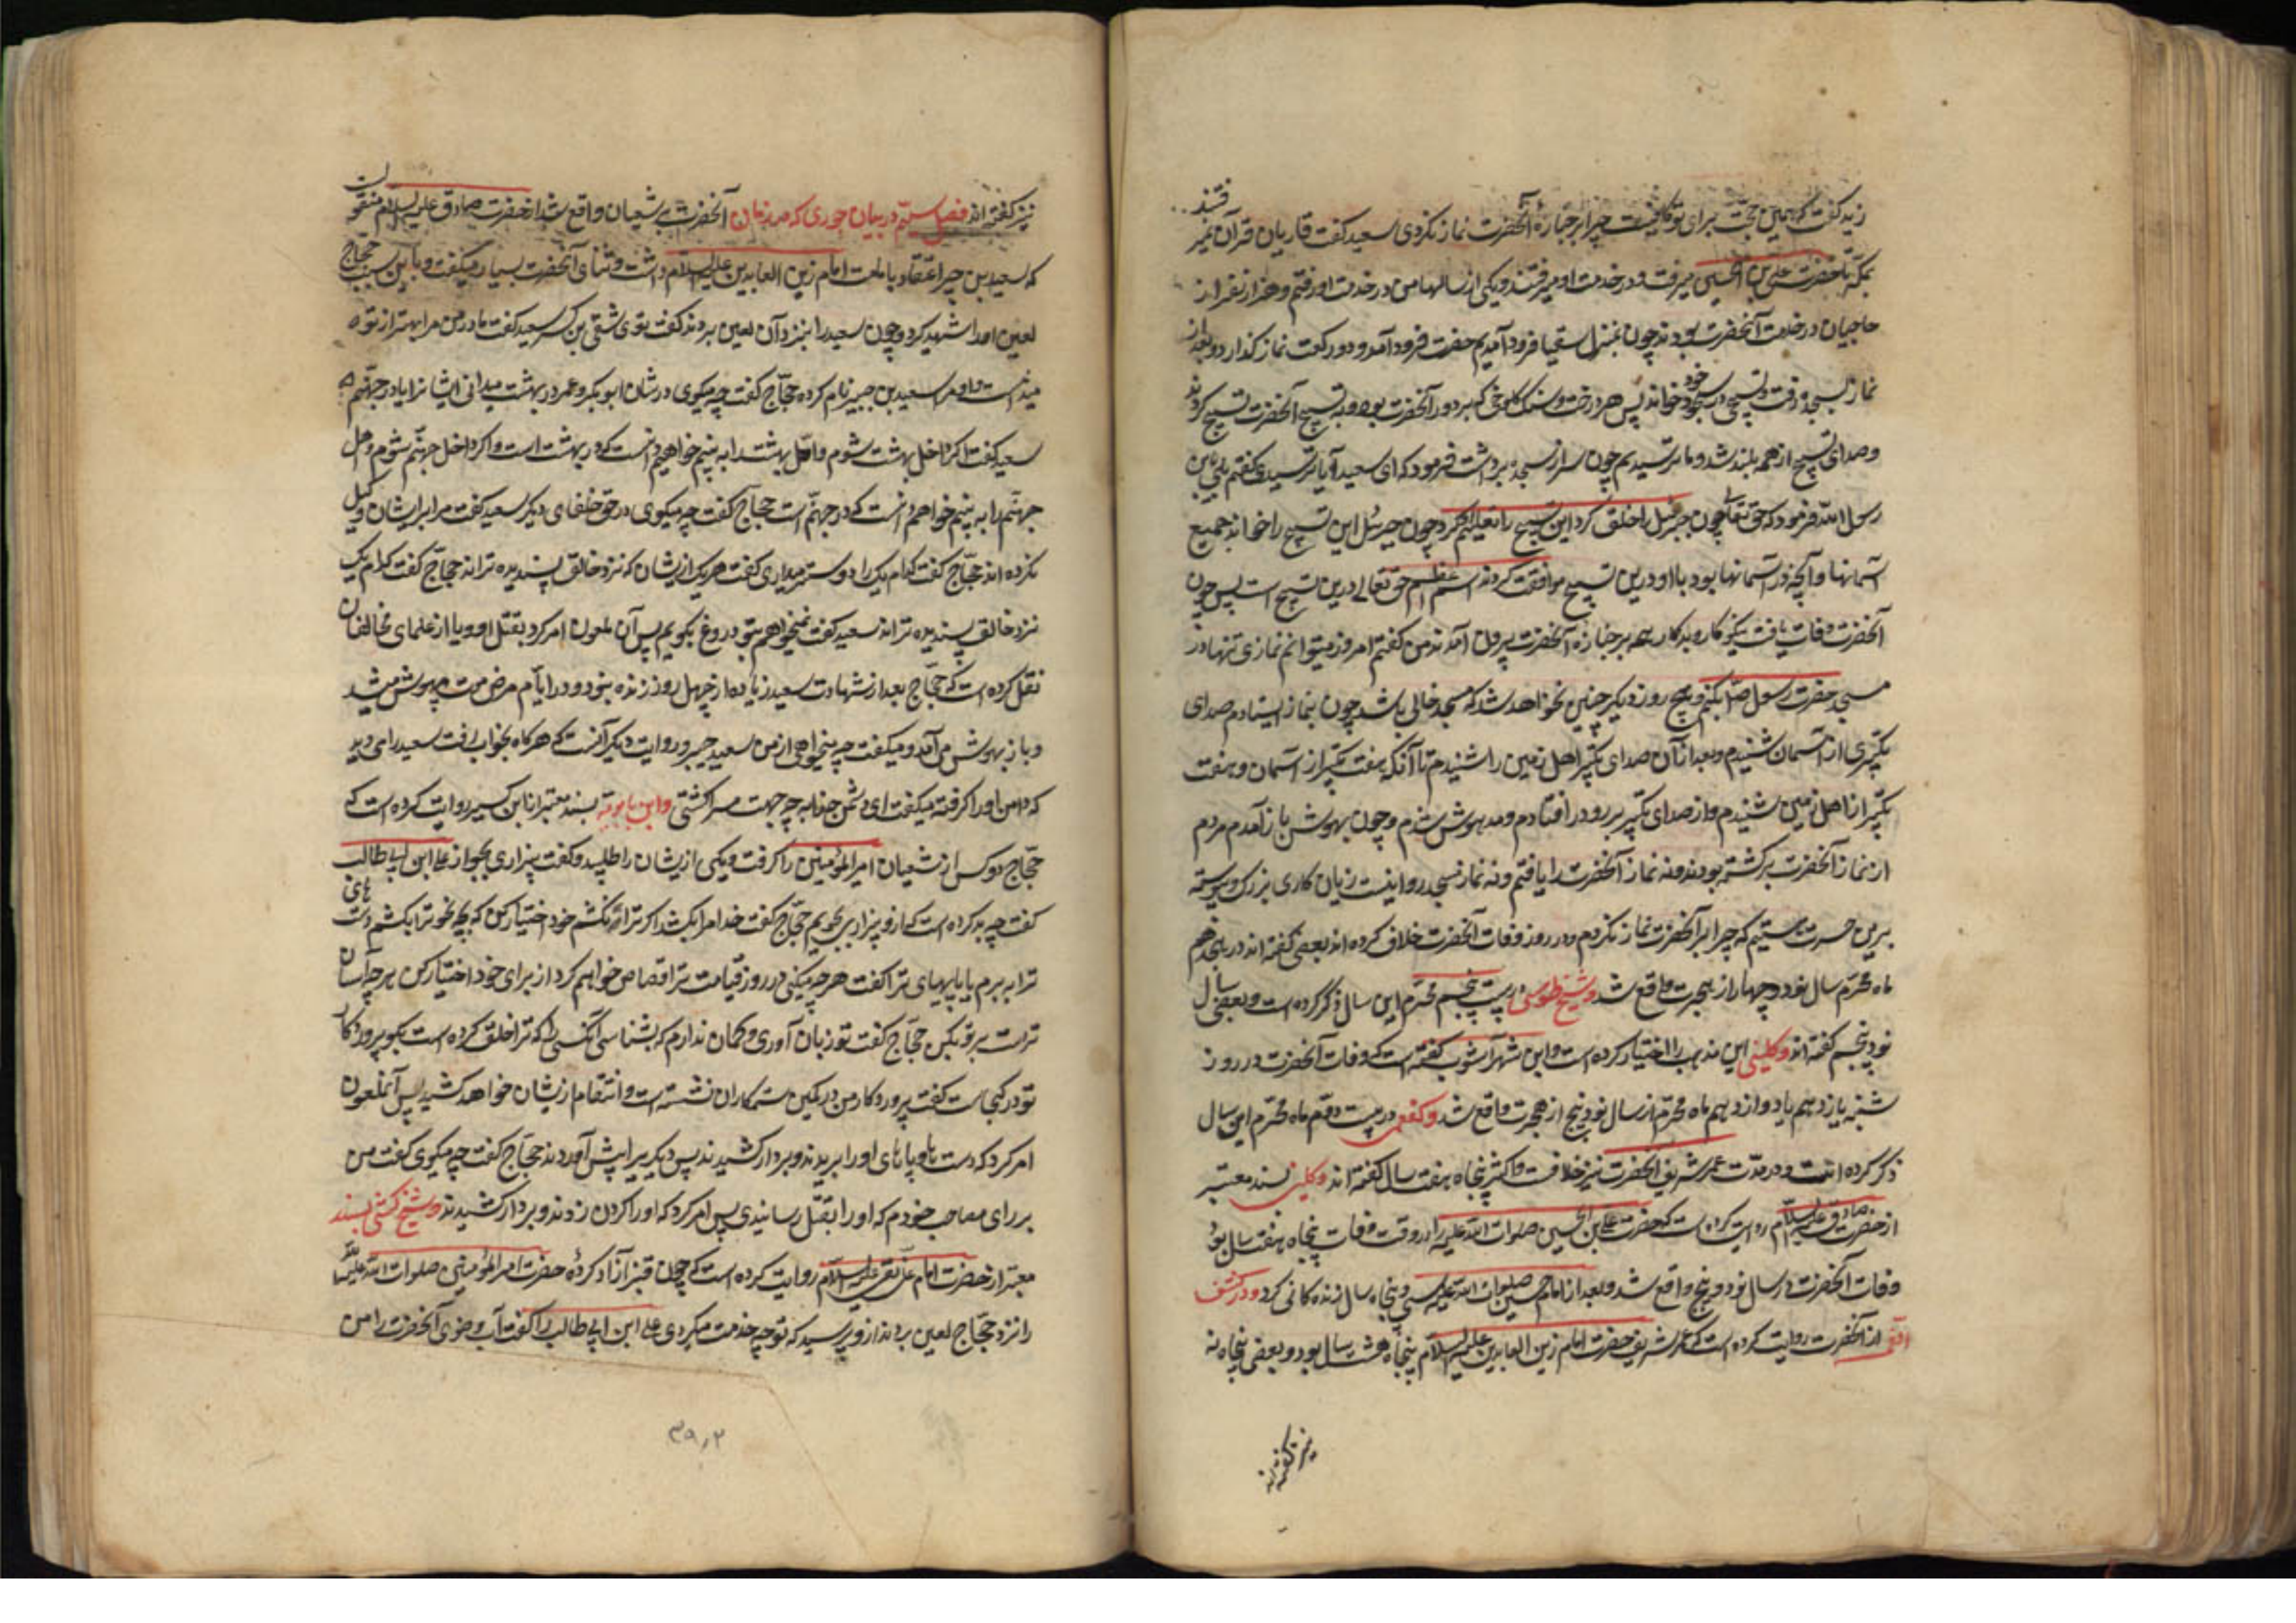 زید گفت که همین حجّت برای تو کافیست چرا بر جنازهٔ آنحضرت نماز نکردی سعید گفت قاریان قرآن نمیرفتند
بمکه تا حضرت علی بن الحسین میرفت و در خدمت او میرفتند و یکی از سالها من در خدمت او رفتم و هزار نفر از
حاجیان در خدمت آنحضرت بودند چون بمنزل سقیا فرود آمدیم حضرت فرود آمد و دو رکعت نماز گذارد و بعد از
نماز بسجده رفت و تسبیحی در سجود خود خواند پس هر درخت و سنگ و کلوخی که بر دور آنحضرت بود به تسبیح آنحضرت تسبیح کردند
و صدای تسبیح از همه بلند شد و ما ترسیدیم چون سر از سجده برداشت فرمود که ای سعید آیا ترسیدی گفتم بلی یابن
رسول الله فرمود که حق تعالی چون جبرئیل را خلق کرد این تسبیح را تعلیم او کرد چون جبرئیل این تسبیح را خواند جمیع
آسمانها و آنچه در آسمانها بود با او درین تسبیح موافقت کردند اسم اعظم حق تعالی درین تسبیح است پس چون
آنحضرت وفات یافت نیکوکار و بدکار همه بر جنازه آنحضرت بیرون آمدند من گفتم امروز میتوانم نمازی تنها در
مسجد حضرت رسول ص بکنم و هیچ روز دیگر چنین نخواهد شد که مسجد خالی باشد چون بنماز ایستادم صدای
تکبیری از آسمان شنیدم و بعد از آن صدای تکبیر اهل زمین را شنیدم تا آنکه هفت تکبیر از آسمان و هفت
تکبیر از اهل زمین شنیدم و از صدای تکبیر بر رو در افتادم و مدهوش شدم و چون بهوش باز آمدم مردم
از نماز آنحضرت برگشته بودند و نه نماز آنحضرت را یافتم و نه نماز مسجد را و اینست زیان کاری بزرگ و پیوسته
برین حسرت هستم که چرا بر آنحضرت نماز نکردم و در روز وفات آنحضرت خلاف کرده اند بعضی گفته اند در هجدهم
ماه محرّم سال نود و چهار از هجرت واقع شد و شیخ طوسی در بیست پنجم محرّم این سال ذکر کرده است و بعضی سال
نود پنجم گفته اند و کلینی این مذهب را اختیار کرده است و ابن شهرآشوب گفته است که وفات آنحضرت در روز
شنبه یازدهم یا دوازدهم ماه محرّم از سال نود پنج از هجرت واقع شد و کفعمی در بیست دوّم ماه محرّم این سال
ذکر کرده است و در مدّت عمر شریف آنحضرت نیز خلافست و اکثر پنجاه هفت سال گفته اند و کلینی بسند معتبر
از حضرت صادق علیه السلام روایت کرده است که حضرت علی بن الحسین صلوات الله علیه را در وقت وفات پنجاه هفت سال بود
وفات آنحضرت در سال نود و پنج واقع شد و بعد از امام حسین صلوات الله علیه سی و پنجاه سال زنده کانی کرد و در کشف
از آنحضرت روایت کرده است که عمر شریف حضرت امام زین العابدین علیه السلام پنجاه هشت سال بود و بعضی پنجاه نه
نیز گفته اند
نیز گفته اند فصل سیّم در بیان جوری که در زمان آنحضرت بر شیعیان واقع شد از حضرت صادق علیه السلام منقولست
که سعید بن جبیر اعتقاد بامامت امام زین العابدین علیه السلام داشت و ثنای آنحضرت بسیار میگفت و باین سبب حجّاج
لعین او را شهید کرد و چون سعید را بنزد آن لعین بردند گفت توی شقی بن کسیر سعید گفت مادر من مرا بهتر از تو
میدانست و او مرا سعید بن جبیر نام کرده حجّاج گفت چه میگوی در شان ابوبکر و عمر در بهشت میدانی ایشانرا یا در جهنّم
سعید گفت اگر داخل بهشت شوم و اهل بهشت را به بینم خواهم دانست که در بهشت است و اگر داخل جهنّم شوم و اهل
جهنّم را به بینم خواهم دانست که در جهنّم است حجّاج گفت چه میگوی در حق خلفای دیگر سعید گفت مرا بر ایشان وکیل
نکرده اند حجّاج گفت کدام یک را دوستر میداری گفت هر یک از یشان که نزد خالق پسندیده تر اند حجّاج گفت کدام یک
نزد خالق پسندیده تر اند سعید گفت نمیخواهم بتو دروغ بگویم پس آن ملعون امر کرد بقتل او و یا از علمای مخالفان
نقل کرده است که حجّاج بعد از شهادت سعید زیاده از چهل روز زنده نبود و در ایّام مرض موت بیهوش میشد
و باز بهوش می آمد و میگفت چه میخواهی از من سعید جبیر و روایت دیگر آنست که هرگاه بخواب رفت سعید را می دید
که دامن او را گرفته میگفت ای دشمن خدا به چه جهت مرا کشتی و ابن بابویه بسند معتبر از ابن کسیر روایت کرده است که
حجّاج دو کس از شیعیان امیر المؤمنین را گرفت و یکی از یشان را طلبید و گفت بیزاری بجو از علی ابن ابی طالب
گفت چه بد کرده است که از و بیزاری بجویم حجّاج گفت خدا مرا بکشد اگر ترا نکشم خود اختیار کن که بچه نحو ترا بکشم دست های
ترا به برم یا پاپهای ترا گفت هر چه میکنی در روز قیامت بتو قصاص خواهم کرد از برای خود اختیار کن هر چه آسان
تر است بر تو بکن حجّاج گفت تو زبان آوری و گمان ندارم که بشناسی آنکسی را که ترا خلق کرده است بگو پروردکار
تو در کجاست گفت پروردکار من در کمین ستمکاران نشسته است و انتقام از یشان خواهد کشید پس آنملعون
امر کرد که دست ها و پاهای او را بریدند و بر دار کشیدند پس دیگریرا پیش آوردند حجّاج گفت چه میگوی گفت من
بر رای مصاحب خودم که او را بقتل رسانیدی پس امر کرد که او را گردن زدند و بر دار کشیدند و شیخ کشی بسند
معتبر از حضرت امام علی نقی علیه السلام روایت کرده است که چون قنبر آزاد کردهٔ حضرت امیر المؤمنین صلوات الله علیه را
را نزد حجّاج لعین بردند از و پرسید که تو چه خدمت میکردی علی ابن ابی طالب را گفت آب وضوی آنحضرت را من